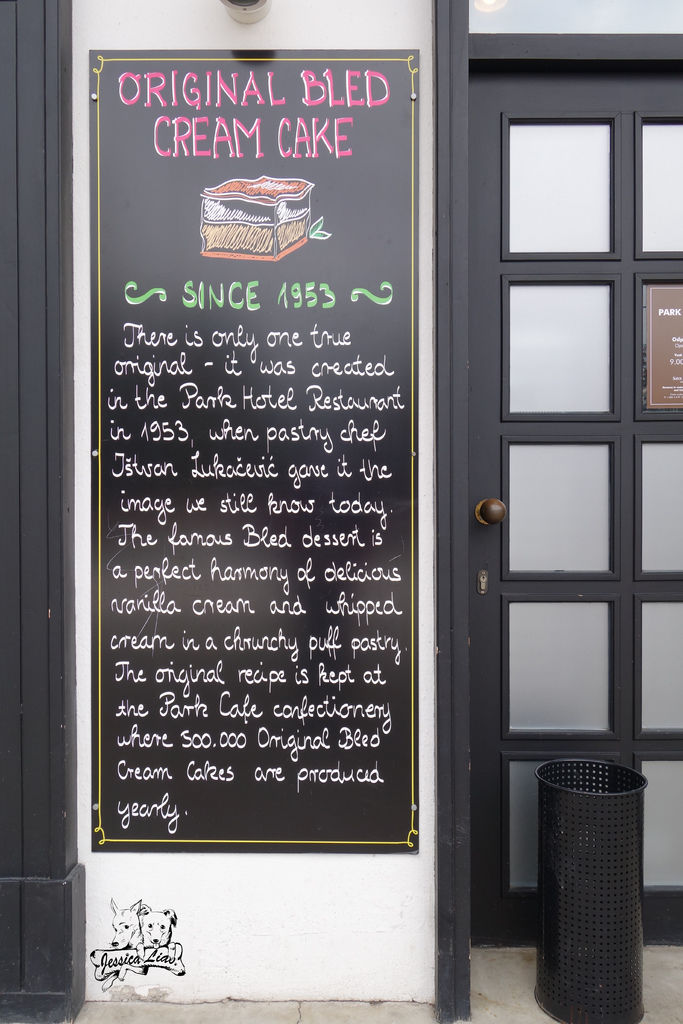 ORIGINAL BLED
CREAM CAKE
SINCE 1953
There is only one true
original - it was created
in the Park Hotel Restaurant
in 1953, when pastry chef
Ištvan Lukačević gave it the
image we still know today.
The famous Bled dessert is
a perfect harmony of delicious
vanilla cream and whipped
cream in a chrunchy puff pastry.
The original recipe is kept at
the Park Cafe confectionery
where 500.000 Original Bled
Cream Cakes are produced
yearly.
PARK
Jessica Liao.